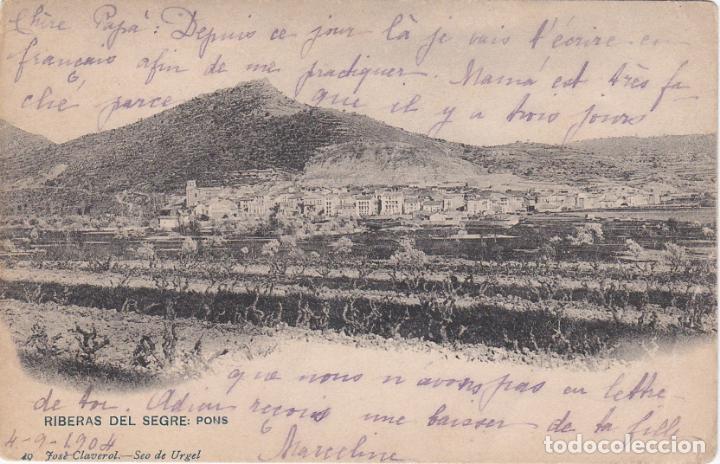 Chère Papá: Depuis ce jour là je vais t'écrire en
français afin de me practiquer. Mamá est très fa-
ché parce que il y a trois jours
que nous n'avons pas eu lettre
de toi. Adieu reçois une baisser de ta fille
Marceline
RIBERAS DEL SEGRE: PONS
4-9-1904
José Claverol.—Seo de Urgel
todocoleccion.net